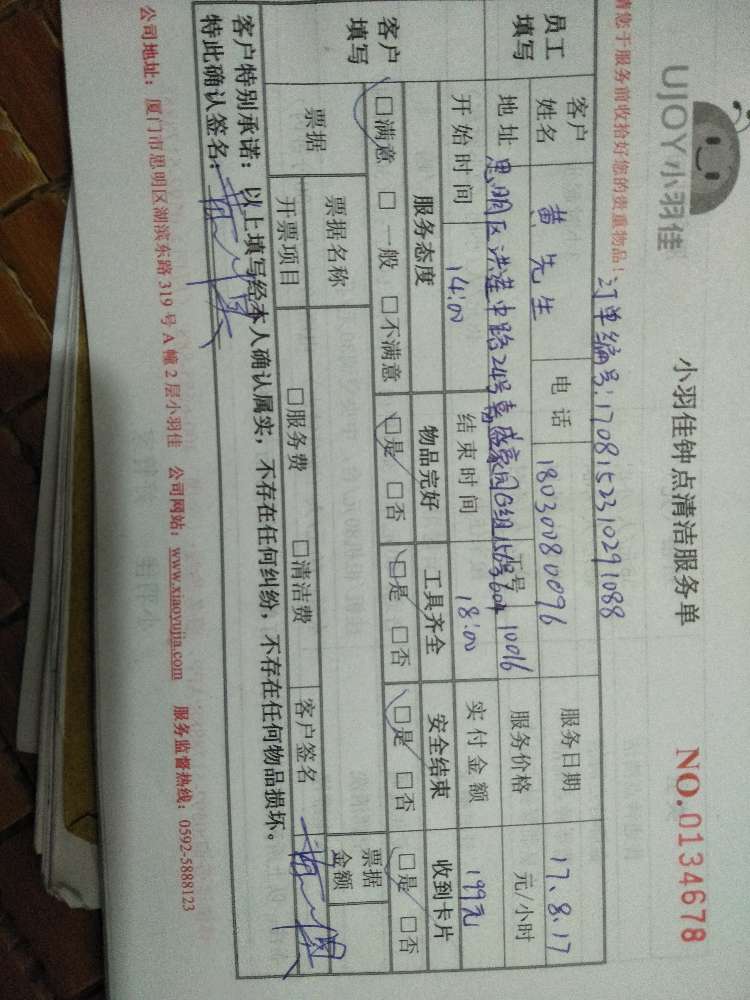 UJOY小羽佳
小羽佳钟点清洁服务单
NO.0134678
请您于服务前收拾好您的贵重物品！
订单编号:17081523102910​88
员工填写
客户姓名 黄先生 电话 18030080096 服务日期 17.8.17
地址 思明区洪莲中路24号 家园G组 604 工号 10016 服务价格 元/小时
开始时间 14:00 结束时间 18:00 实付金额 199元
客户填写
服务态度 物品完好 工具齐全 安全结束 收到卡片
□满意 □一般 □不满意 □是 □否 □是 □否 □是 □否 □是 □否
票据 票据名称 票据金额
开票项目 □服务费 □清洁费 客户签名
客户特别承诺：以上填写经本人确认属实，不存在任何纠纷，不存在任何物品损坏。
特此确认签名：
公司地址：厦门市思明区湖滨东路319号A幢2层小羽佳 公司网站：www.xiaoyujia.com 服务监督热线：0592-5888123